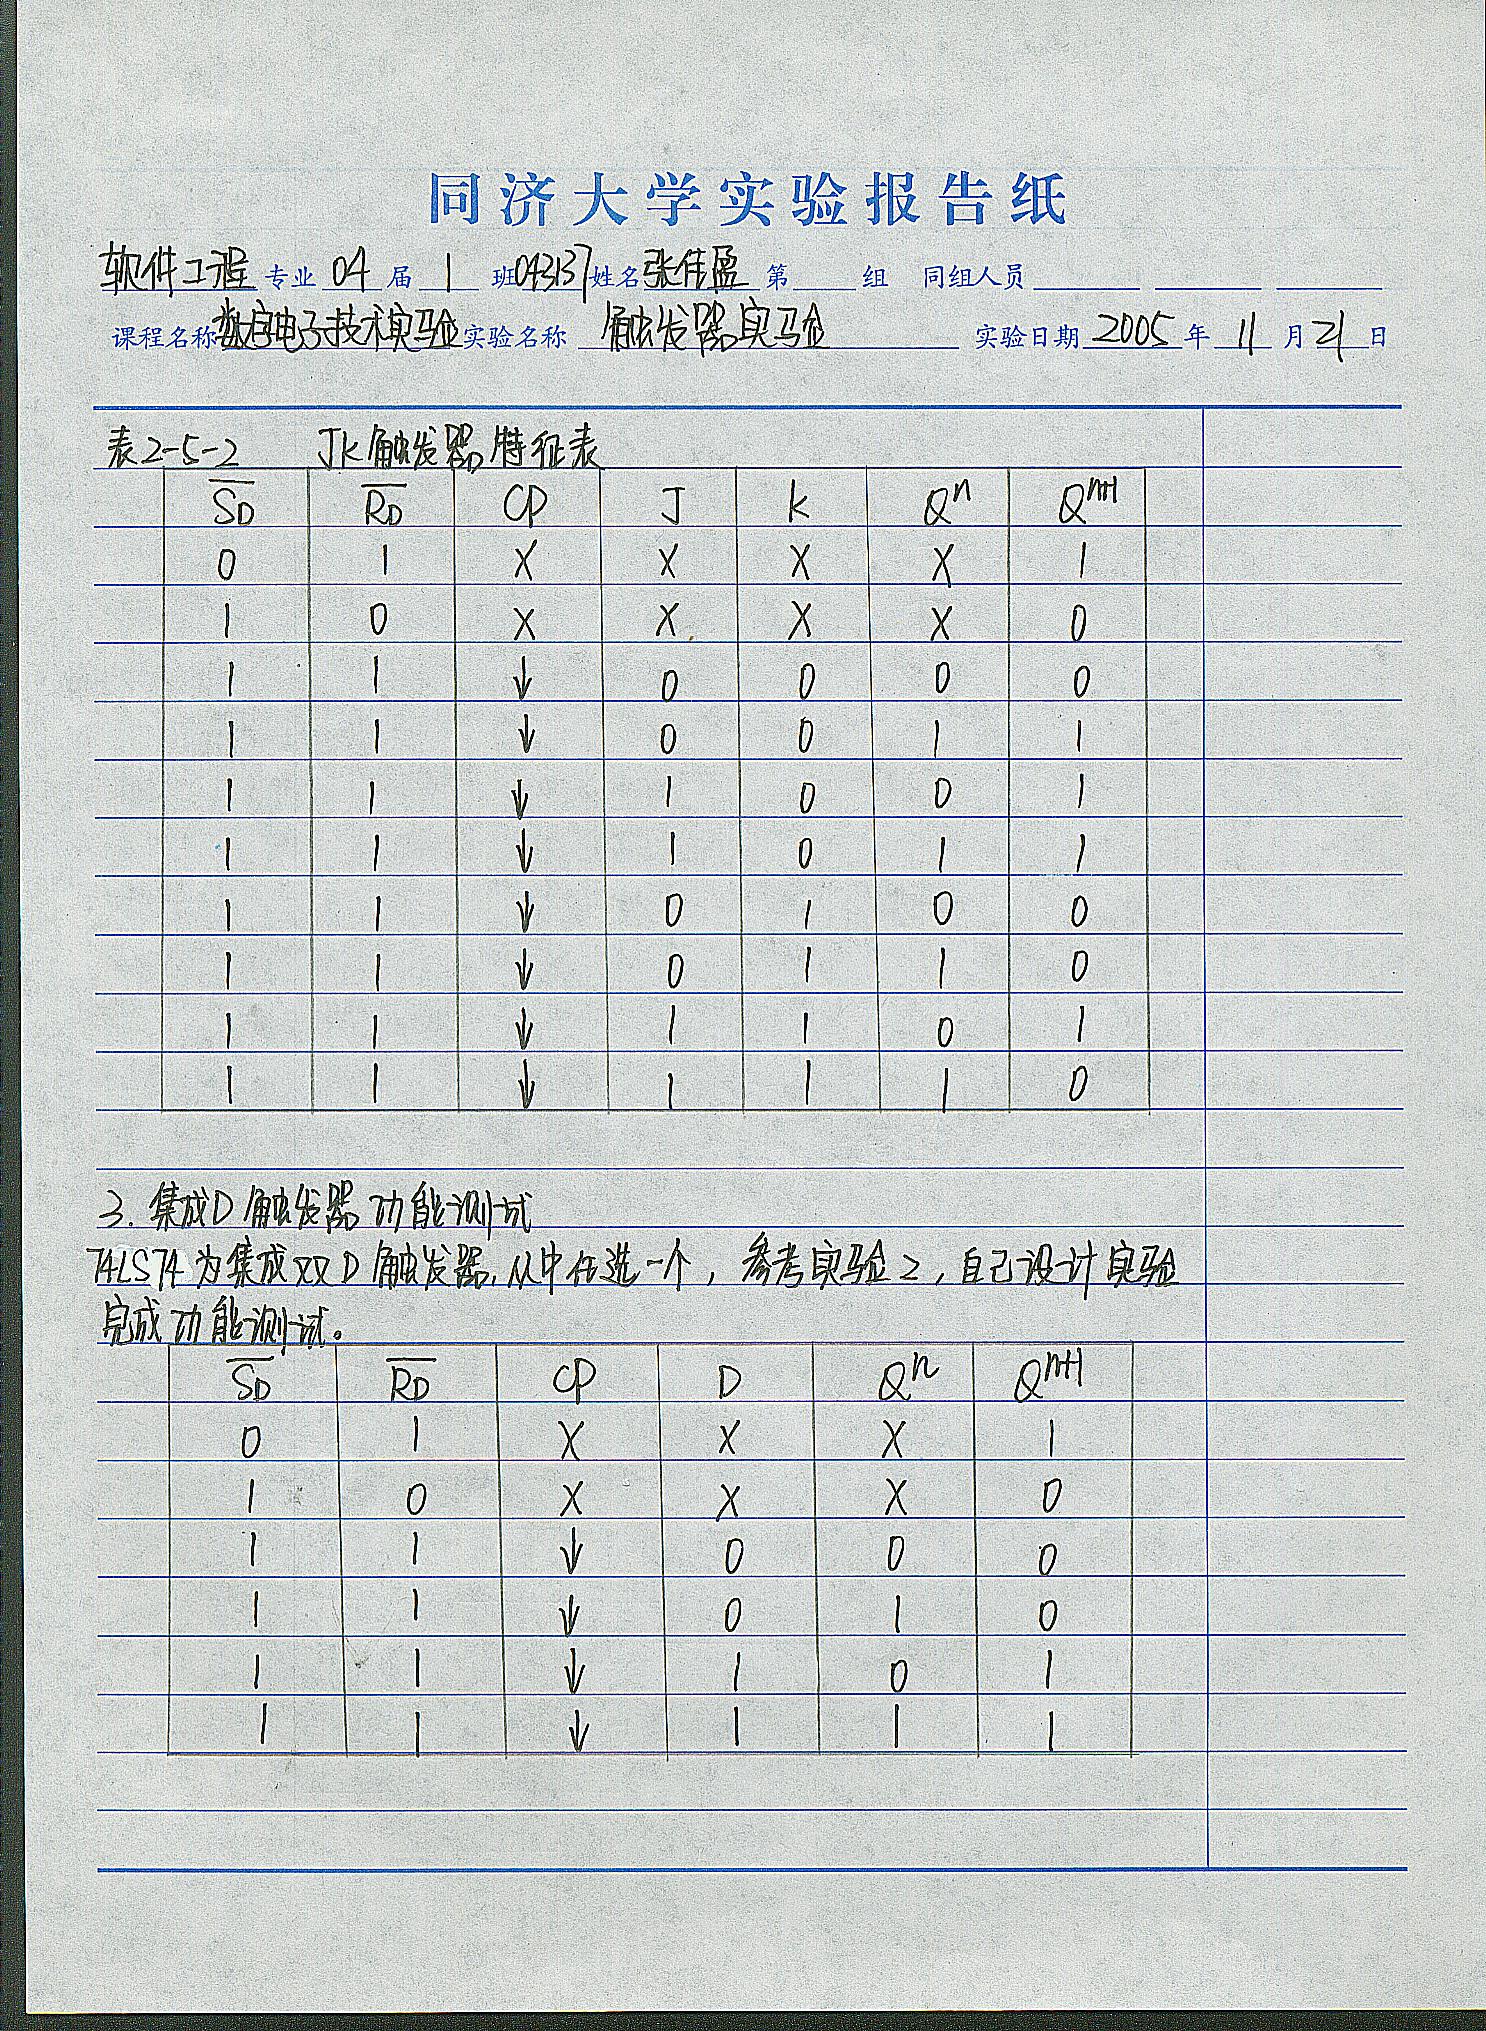 同济大学实验报告纸
软件工程 专业 04 届 1 班 043137 姓名 张伟盈 第 组 同组人员
课程名称 数字电子技术实验 实验名称 触发器实验 实验日期 2005 年 11 月 21 日
表2-5-2 JK触发器特征表
S̅D̅ R̅D̅ CP J K Qⁿ Qⁿ⁺¹
0 1 X X X X 1
1 0 X X X X 0
1 1 ↓ 0 0 0 0
1 1 ↓ 0 0 1 1
1 1 ↓ 1 0 0 1
1 1 ↓ 1 0 1 1
1 1 ↓ 0 1 0 0
1 1 ↓ 0 1 1 0
1 1 ↓ 1 1 0 1
1 1 ↓ 1 1 1 0
3. 集成D触发器功能测试
74LS74为集成双D触发器,从中任选一个,参考实验2,自己设计实验
完成功能测试。
S̅D̅ R̅D̅ CP D Qⁿ Qⁿ⁺¹
0 1 X X X 1
1 0 X X X 0
1 1 ↓ 0 0 0
1 1 ↓ 0 1 0
1 1 ↓ 1 0 1
1 1 ↓ 1 1 1